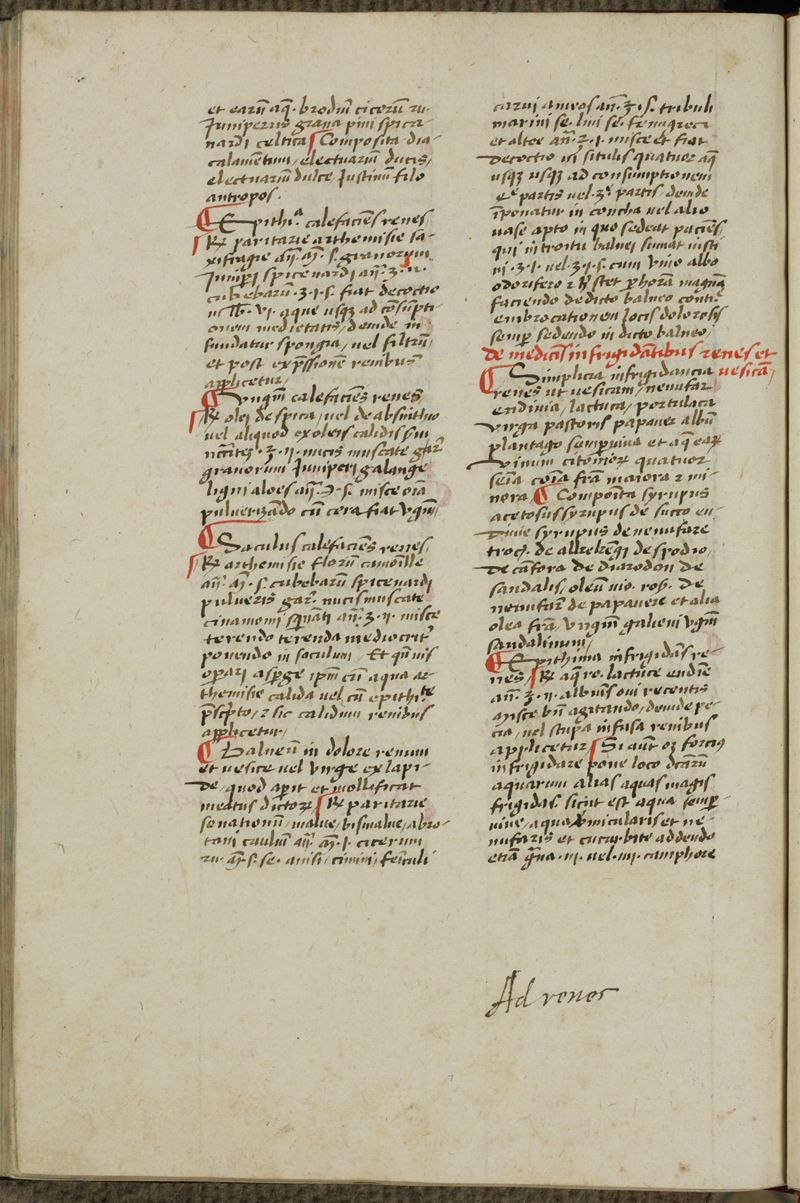 et earū aq̄. brodiū cicerū ru.
Juniperus grana pini spica
nardi celtica Composita dia-
calamentum, electuariū ducis,
electuariū dulce Justinū filo
antropos.
Epithiᵃ calefaciēs renes
℞ paritarie arthemisie sa-
xifrage aīī. aʒ. s. granorum
Juniperi spice nardi aīī. ʒ. ij.
cubebarū. ʒ. i. s. fiat decoctio
in lb. vi. aque usqʒ ad cōsūpti-
onem medietatis, deinde in
fundatur spongia, vel filtrū,
et post exp̄ssionē renibus
applicetur,
Vngm̄ calefaciēs renes
℞ olei de spica, vel de absinthio
vel aliquod ex oleis calidis sim
ʒ. ij. nucis muscate gar.
granorum Juniperi galange
ligni aloes aīī. ℈. s. misce oīa
pulverizādo cū cera fiat vgm̄,
Saculus calefaciēs renes,
℞ arthemisie florū camoīlle
aīī. aʒ. s. cubebarū spice nardi
pulveris gar. nucis muscate
cinamomi sq̄nāti aīī. ʒ. ij. misce
terendo terenda mediocrit̄
ponendo in saculum, Et qn̄ vis
opari asp̄ge ipm̄ cū aqua ar-
themisie calida vel cū epithite
p̄scp̄to, ⁊ sic calidum renibus
applicetur,
Balneū in dolore renum
et vesice vel virge ex lapi-
de, quod apit et mollificat
meatus dictoꝝ ℞ paritarie
senationū, malve, bismalve, abro-
tani caulium aīī. aʒ. j. cicerum
ru. aʒ. s. se. anisi, cimini, feniculi
carui ameos aīī. ʒ. i. s. tribuli
marini se. lini se. fenugreci
et altee aīī. ʒ. j. misce et fiat
decoctio situlis quatuor aq̄
usqʒ usqʒ ad consumptionem
4ᵉ partis vel. 3ᵉ partis deinde
īponatur in concha vel alio
vase apto in quo sedeat paciēs,
qui in troitu balnei sumat
ʒ. i. vel. ʒ. i. s. cum vino albo
odorifero ⁊ stet p̄ horam magnā
faciendo de dicto balneo
embrocationem locis dolorosis
semp̄ sedendo in dicto balneo,
De medicīs infrigidātibus renes et
vesicā,
Simplicia infrigidancia
renes ut vesicam, nenufar
endivia, lactuca, portulaca
virga pastoris papaver albū
plantago sempviva et aq̄ eaꝝ
vinum quatuor
seīa coīa frā maiora ⁊ mi-
nora Composita syrupus
acetosus syrupus de succo en-
divie syrupus de nenufare
troc. de alkekēgi de spodio,
de cāfora de diarodon de
sandalis, oleū vio. ros. de
nenufar. de papavere et alia
olea frā, vngm̄ galieni vgm̄
sandalinum,
Epithima infrigidās re-
nes, ℞ aq̄ ro. lactuce endīe
aīī. ʒ. ij. albūs ovi recentis
misce bn̄ agitando, deinde pe-
cia, vel stupa infusa renibus
applicetur Si aut̄ oꝫ forcius
infrigidare pone loco dcārū
aquarum alias aquas magis
frigidas, sicut est aqua semp̄-
vive, aqua vmicularis et ne-
nufaris et cucurbite addendo
etiā grāa. iij. vel. iiij. camphore
Ad renes